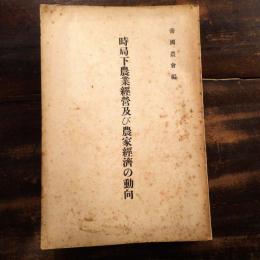 帝國農會編
時局下農業經營及び農家經濟の動向